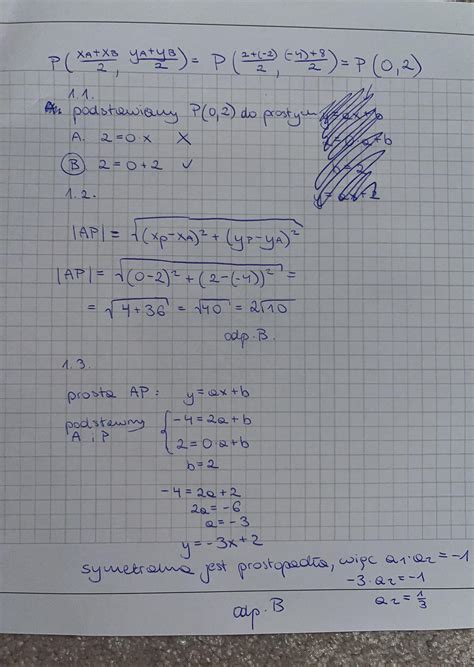 P( (xA+xB)/2 , (yA+yB)/2 ) = P( (2+(-2))/2 , ((-4)+8)/2 ) = P(0,2)
1.1.
podstawiamy P(0,2) do prostych
A. 2=0·x X
B 2=0+2 ✓
1.2.
|AP| = √((xp-xA)²+(yp-yA)²)
|AP| = √((0-2)²+(2-(-4))²) =
= √(4+36) = √40 = 2√10
odp. B.
1.3.
prosta AP: y=ax+b
podstawmy A i P { -4=2a+b
2=0·a+b
b=2
-4=2a+2
2a=-6
a=-3
y=-3x+2
symetralna jest prostopadła, więc a₁·a₂=-1
-3·a₂=-1
a₂=1/3
odp. B